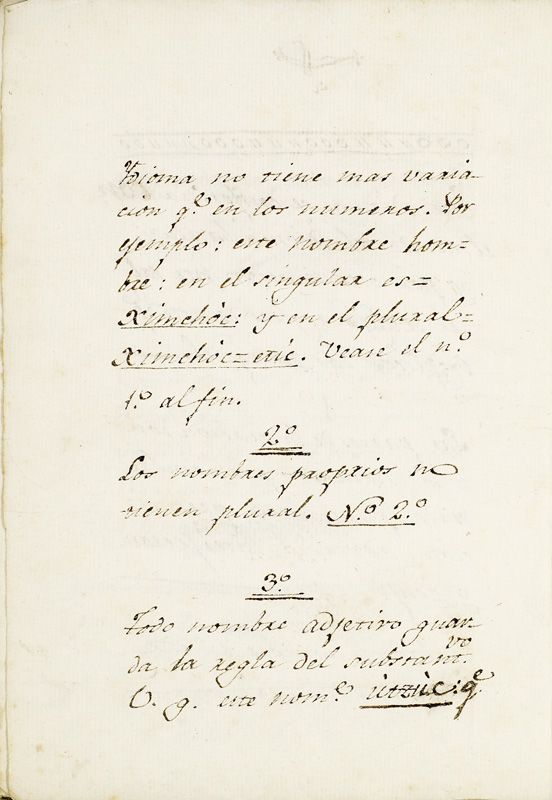 Ydioma no tiene mas varia-
cion q.e en los numeros. Por
ejemplo: este nombre hom=
bre: en el singular es=
Ximchòc: y en el plural=
Ximchòc=etic. Vease el n.o
1.o al fin.
2.o
Los nombres proprios no
tienen plural. N.o 2.o
3.o
Todo nombre adjetivo guar
da, la regla del substant.vo
V. g. este nom.e ùtzùc: q.e